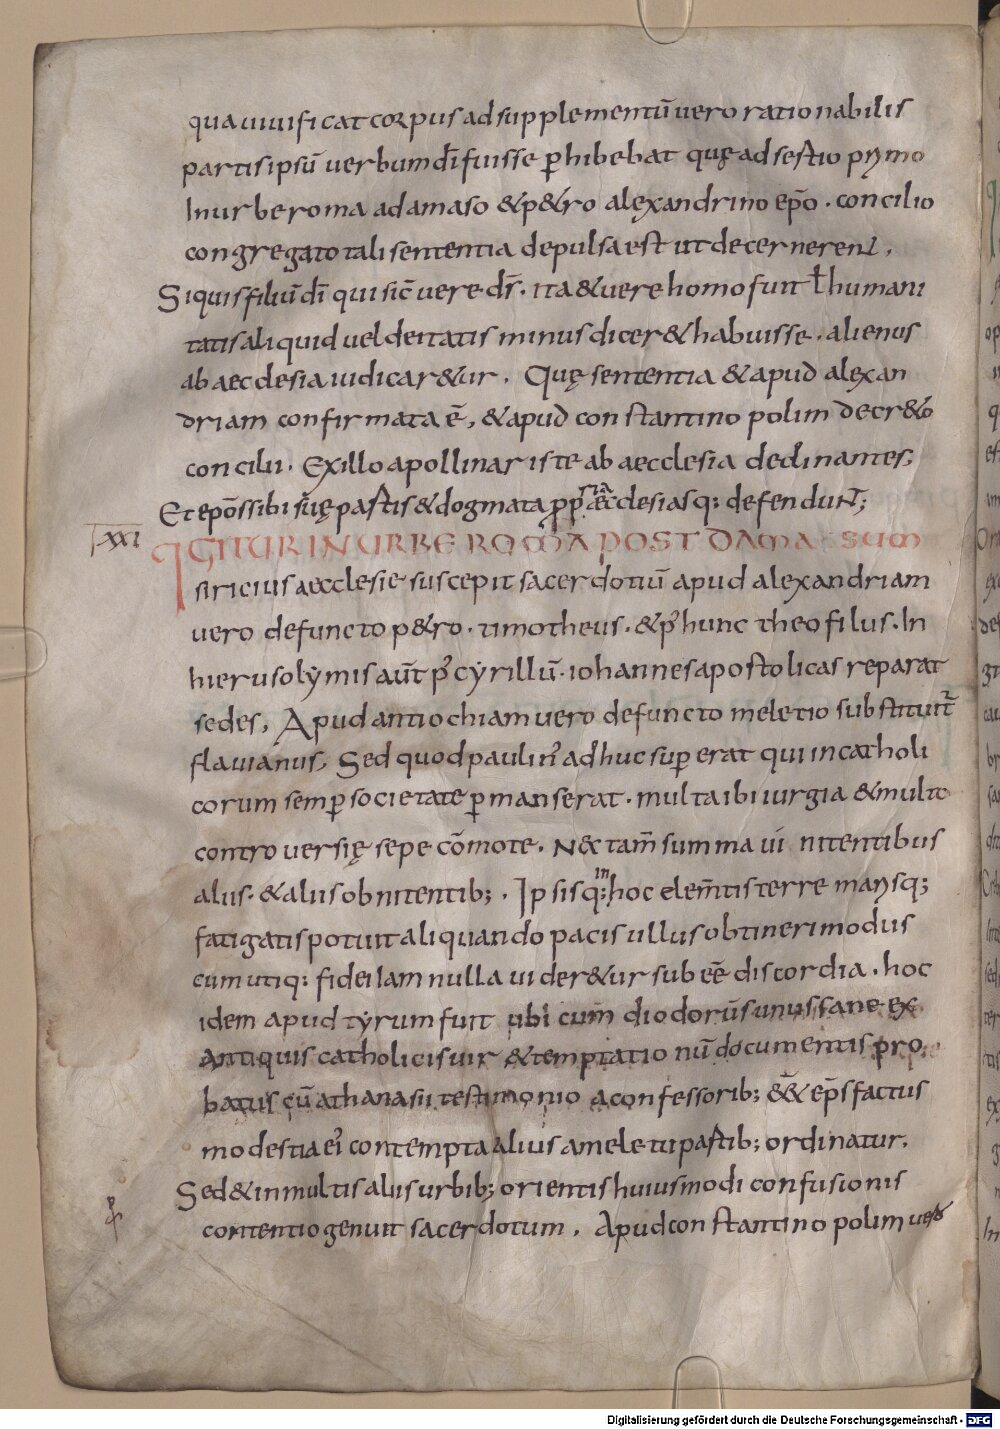 qua uiuificat corpus ad supplementū uero rationabilis
partis ipsū uerbum dī fuisse phibebat quę ad sestio prymo
In urbe roma a damaso & p&ro alexandrino ep̄o · concilio
congregato tali sententia depulsa est ut decernerent,
Siquis filiū dī qui sic̄ uere d̄s · ita & uere homo fuit ł humani
tatis aliquid uel deitatis minus dicer& habuisse · alienus
ab aecclesia iudicar&ur, Quę sententia & apud alexan
driam confirmata ē, & apud constantinopolim decr&o
concilii · Ex illo apollinariste ab aecclesia declinantes,
Et ep̄os sibi suę partis & dogmata ppria & ęcclesiasq; defendunt;
XXI
IGITUR IN URBE ROMA POST DAMASUM
siricius aecclesie suscepit sacerdotiū apud alexandriam
uero defuncto p&ro · timotheus · & p' hunc theofilus · In
hierusolymis aūt p' cyrillū · iohannes apostolicas reparat
sedes, Apud antiochiam uero defuncto meletio substituit̄
flauianus, Sed quod paulin' adhuc superat qui in catholi
corum semp societate pmanserat · multa ibi iurgia & multe
controuersię sepe cōmote · N& tam̄ summa ui nitentibus
aliis · & aliis obnitentib; · Ipsisq; hoc elem̄tis terre marisq;
fatigatis potuit aliquando pacis ullus obtineri modus
cum utiq; fidei iam nulla uider&ur subeē discordia · hoc
idem apud tyrum fuit ubi cum diodorūs unus sane ex
antiquis catholicis uir & temptationū documentis pro
batus cū athanasii testimonio a confessorib; & ep̄s factus
modestia ei' contempta alius a meletii partib; ordinatur.
Sed & in multis aliis urbib; orientis huiusmodi confusionis
contentio genuit sacerdotum, Apud constantinopolim uero
Digitalisierung gefördert durch die Deutsche Forschungsgemeinschaft - DFG